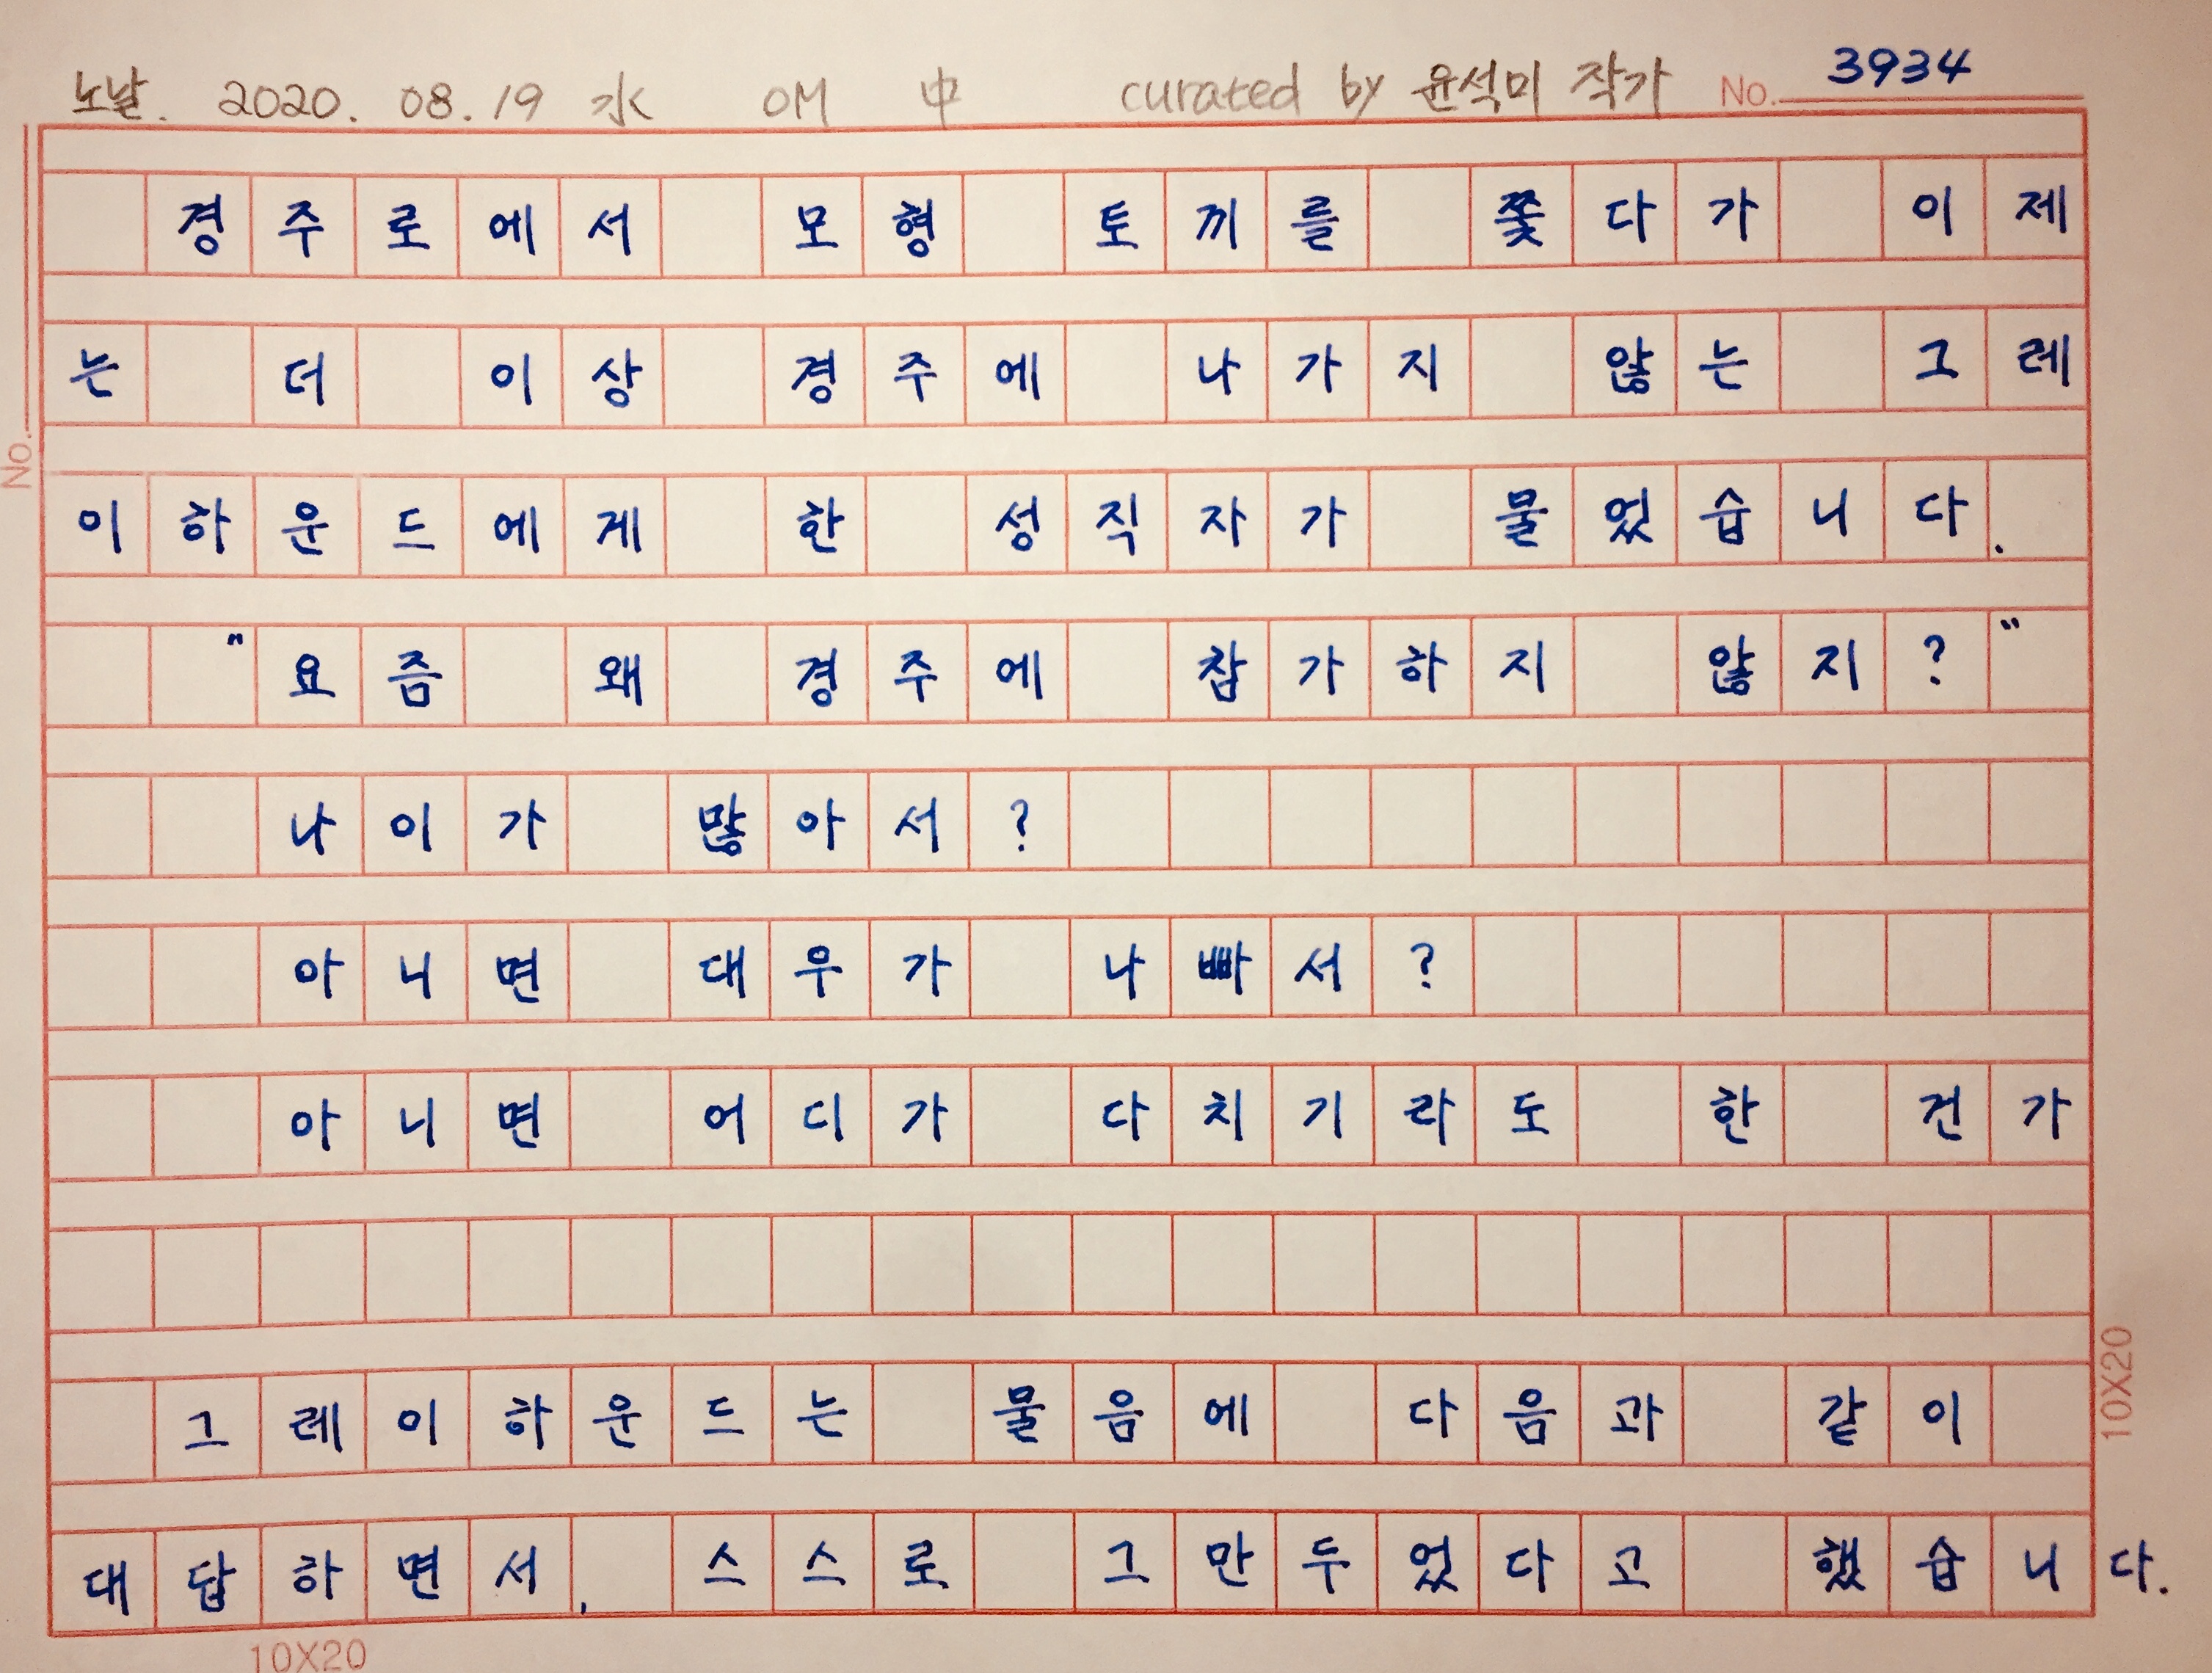 노날. 2020. 08. 19 水 OM 中 curated by 윤석미 작가 No. 3934
경주로에서 모형 토끼를 쫓다가 이제
는 더 이상 경주에 나가지 않는 그레
이하운드에게 한 성직자가 물었습니다.
"요즘 왜 경주에 참가하지 않지?"
나이가 많아서?
아니면 대우가 나빠서?
아니면 어디가 다치기라도 한 건가
그레이하운드는 물음에 다음과 같이
대답하면서, 스스로 그만두었다고 했습니다.
No.
10X20
10X20